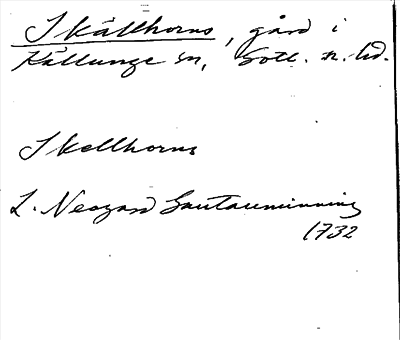 Skällhorns, gård i
Källunge sn, Gotl. n. hd.
Skellhorns
L. Neogard Gautauminning
1732